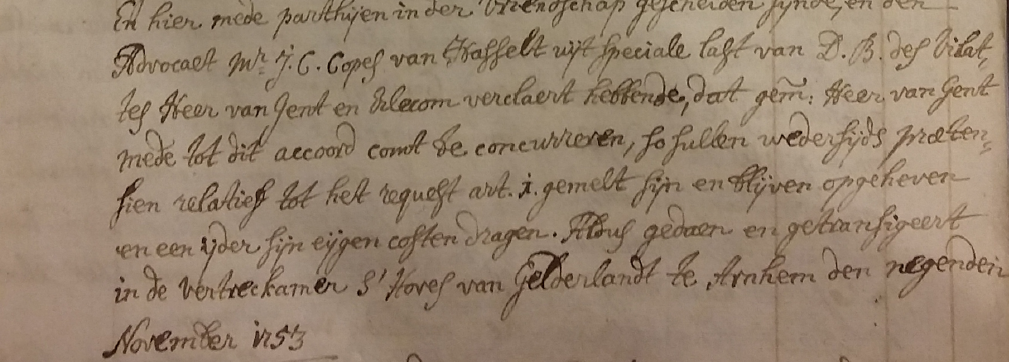 En hier mede parthijen in der vriendschap gescheiden sijnde, en den
Advocaet Mr. J. C. Copes van Hasselt uijt speciale last van D. B. des Vilat,,
tes Heer van Gent en Erlecom verclaert hebbende, dat gem: Heer van Gent
mede tot dit accoord comt te concurreren, so sullen wedersijds præten,,
sien relatief tot het request art. i. gemelt sijn en blijven opgeheven
en een ijder sijn eijgen costen dragen. Aldus gedaen en getransigeert
in de vertreckamer S' Hoves van Gelderlandt te Arnhem den negenden
November 1753